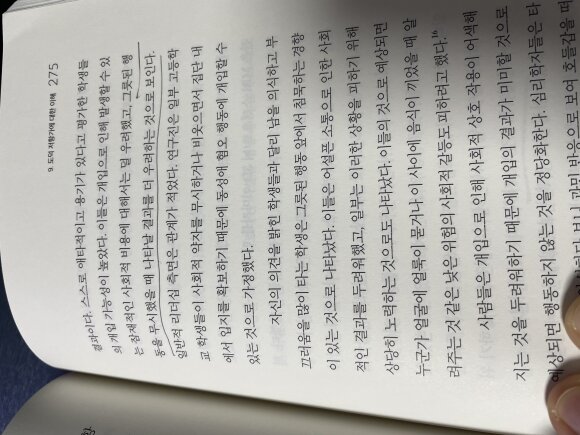 9. 도덕 저항가에 대한 이해 275
결과이다. 스스로 애타적이고 용기가 있다고 평가한 학생들
의 개입 가능성이 높았다. 이들은 개입으로 인해 발생할 수 있
는 잠재적인 사회적 비용에 대해서는 덜 우려했고, 그릇된 행
동을 무시했을 때 나타날 결과를 더 우려하는 것으로 보인다.
일반적 리더십 측면은 관계가 적었다. 연구진은 일부 고등학
교 학생들이 사회적 약자를 무시하거나 비웃으면서 집단 내
에서 입지를 확보하기 때문에 동성애 혐오 행동에 개입할 수
있는 것으로 가정했다.
자신의 의견을 밝힌 학생들과 달리 남을 의식하고 부
끄러움을 많이 타는 학생은 그릇된 행동 앞에서 침묵하는 경향
이 있는 것으로 나타났다. 이들은 어설픈 소통으로 인한 사회
적인 결과를 두려워했고, 일부는 이러한 상황을 피하기 위해
상당히 노력하는 것으로도 나타났다. 이들의 것으로 예상되면
누군가 얼굴에 얼룩이 묻거나 이 사이에 음식이 끼었을 때 알
려주는 것 같은 낮은 위험의 사회적 갈등도 피하려고 했다.16
사람들은 개입으로 인해 사회적 상호 작용이 어색해
지는 것을 두려워하기 때문에 개입의 결과가 미미할 것으로
예상되면 행동하지 않는 것을 정당화한다. 심리학자들은 타